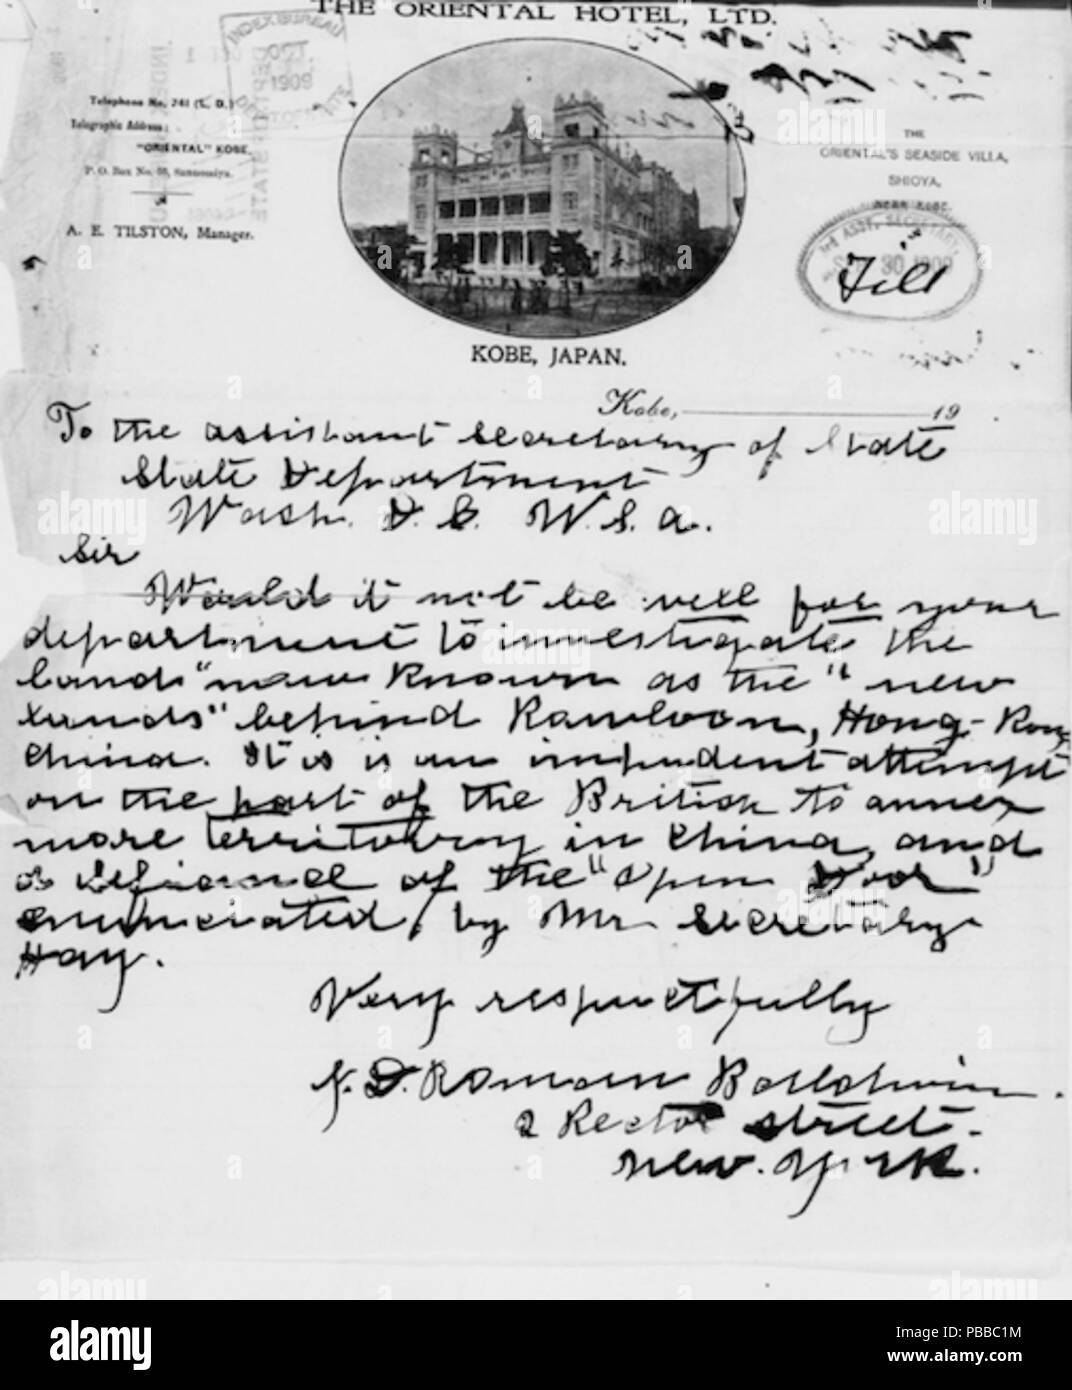 THE ORIENTAL HOTEL, LTD.
INDEX BUREAU
OCT
1909
DEPT OF STATE
Telephone No. 241 (L. D.)
Telegraphic Address:
"ORIENTAL" KOBE.
P. O. Box No. Sannomiya.
A. E. TILSTON, Manager.
THE
ORIENTAL'S SEASIDE VILLA,
SHIOYA,
NEAR KOBE.
3rd ASST. SECRETARY,
30 1909
File
KOBE, JAPAN.
Kobe, 19
To the assistant secretary of State
State Department
Wash. D. C. U. S. A.
Sir
Would it not be well for your
department to investigate the
lands "now known as the "new
lands" behind Kowloon, Hong-Kong
China. It is is an impudent attempt
on the part of the British to annex
more territory in China, and
a defiance of the "Open Door"
enunciated, by Mr Secretary
Hay.
Very respectfully
Romain Baldwin.
2 Rector street.
New. York.
alamy
alamy
PBBC1M
www.alamy.com